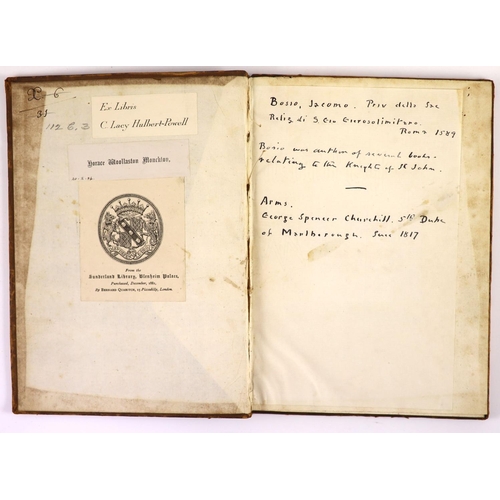 X 6
31
112 E. 3
Ex Libris
C. Lacy Hulbert-Powell
Horace Woollaston Monckton,
From the
Sunderland Library, Blenheim Palace,
Purchased, December, 1881,
By Bernard Quaritch, 15 Piccadilly, London.
Bosio, Jacomo. Priv dello Sac
Relig di S. Gio Gerosolimitano.
Roma 1589
Bosio was author of several books
relating to the Knights of St John.
Arms.
George Spencer Churchill. 5th Duke
of Marlborough. Succ 1817